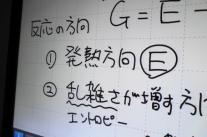 反応の方向 G = E −
① 発熱方向 E
② 乱雑さが増す方
エントロピー